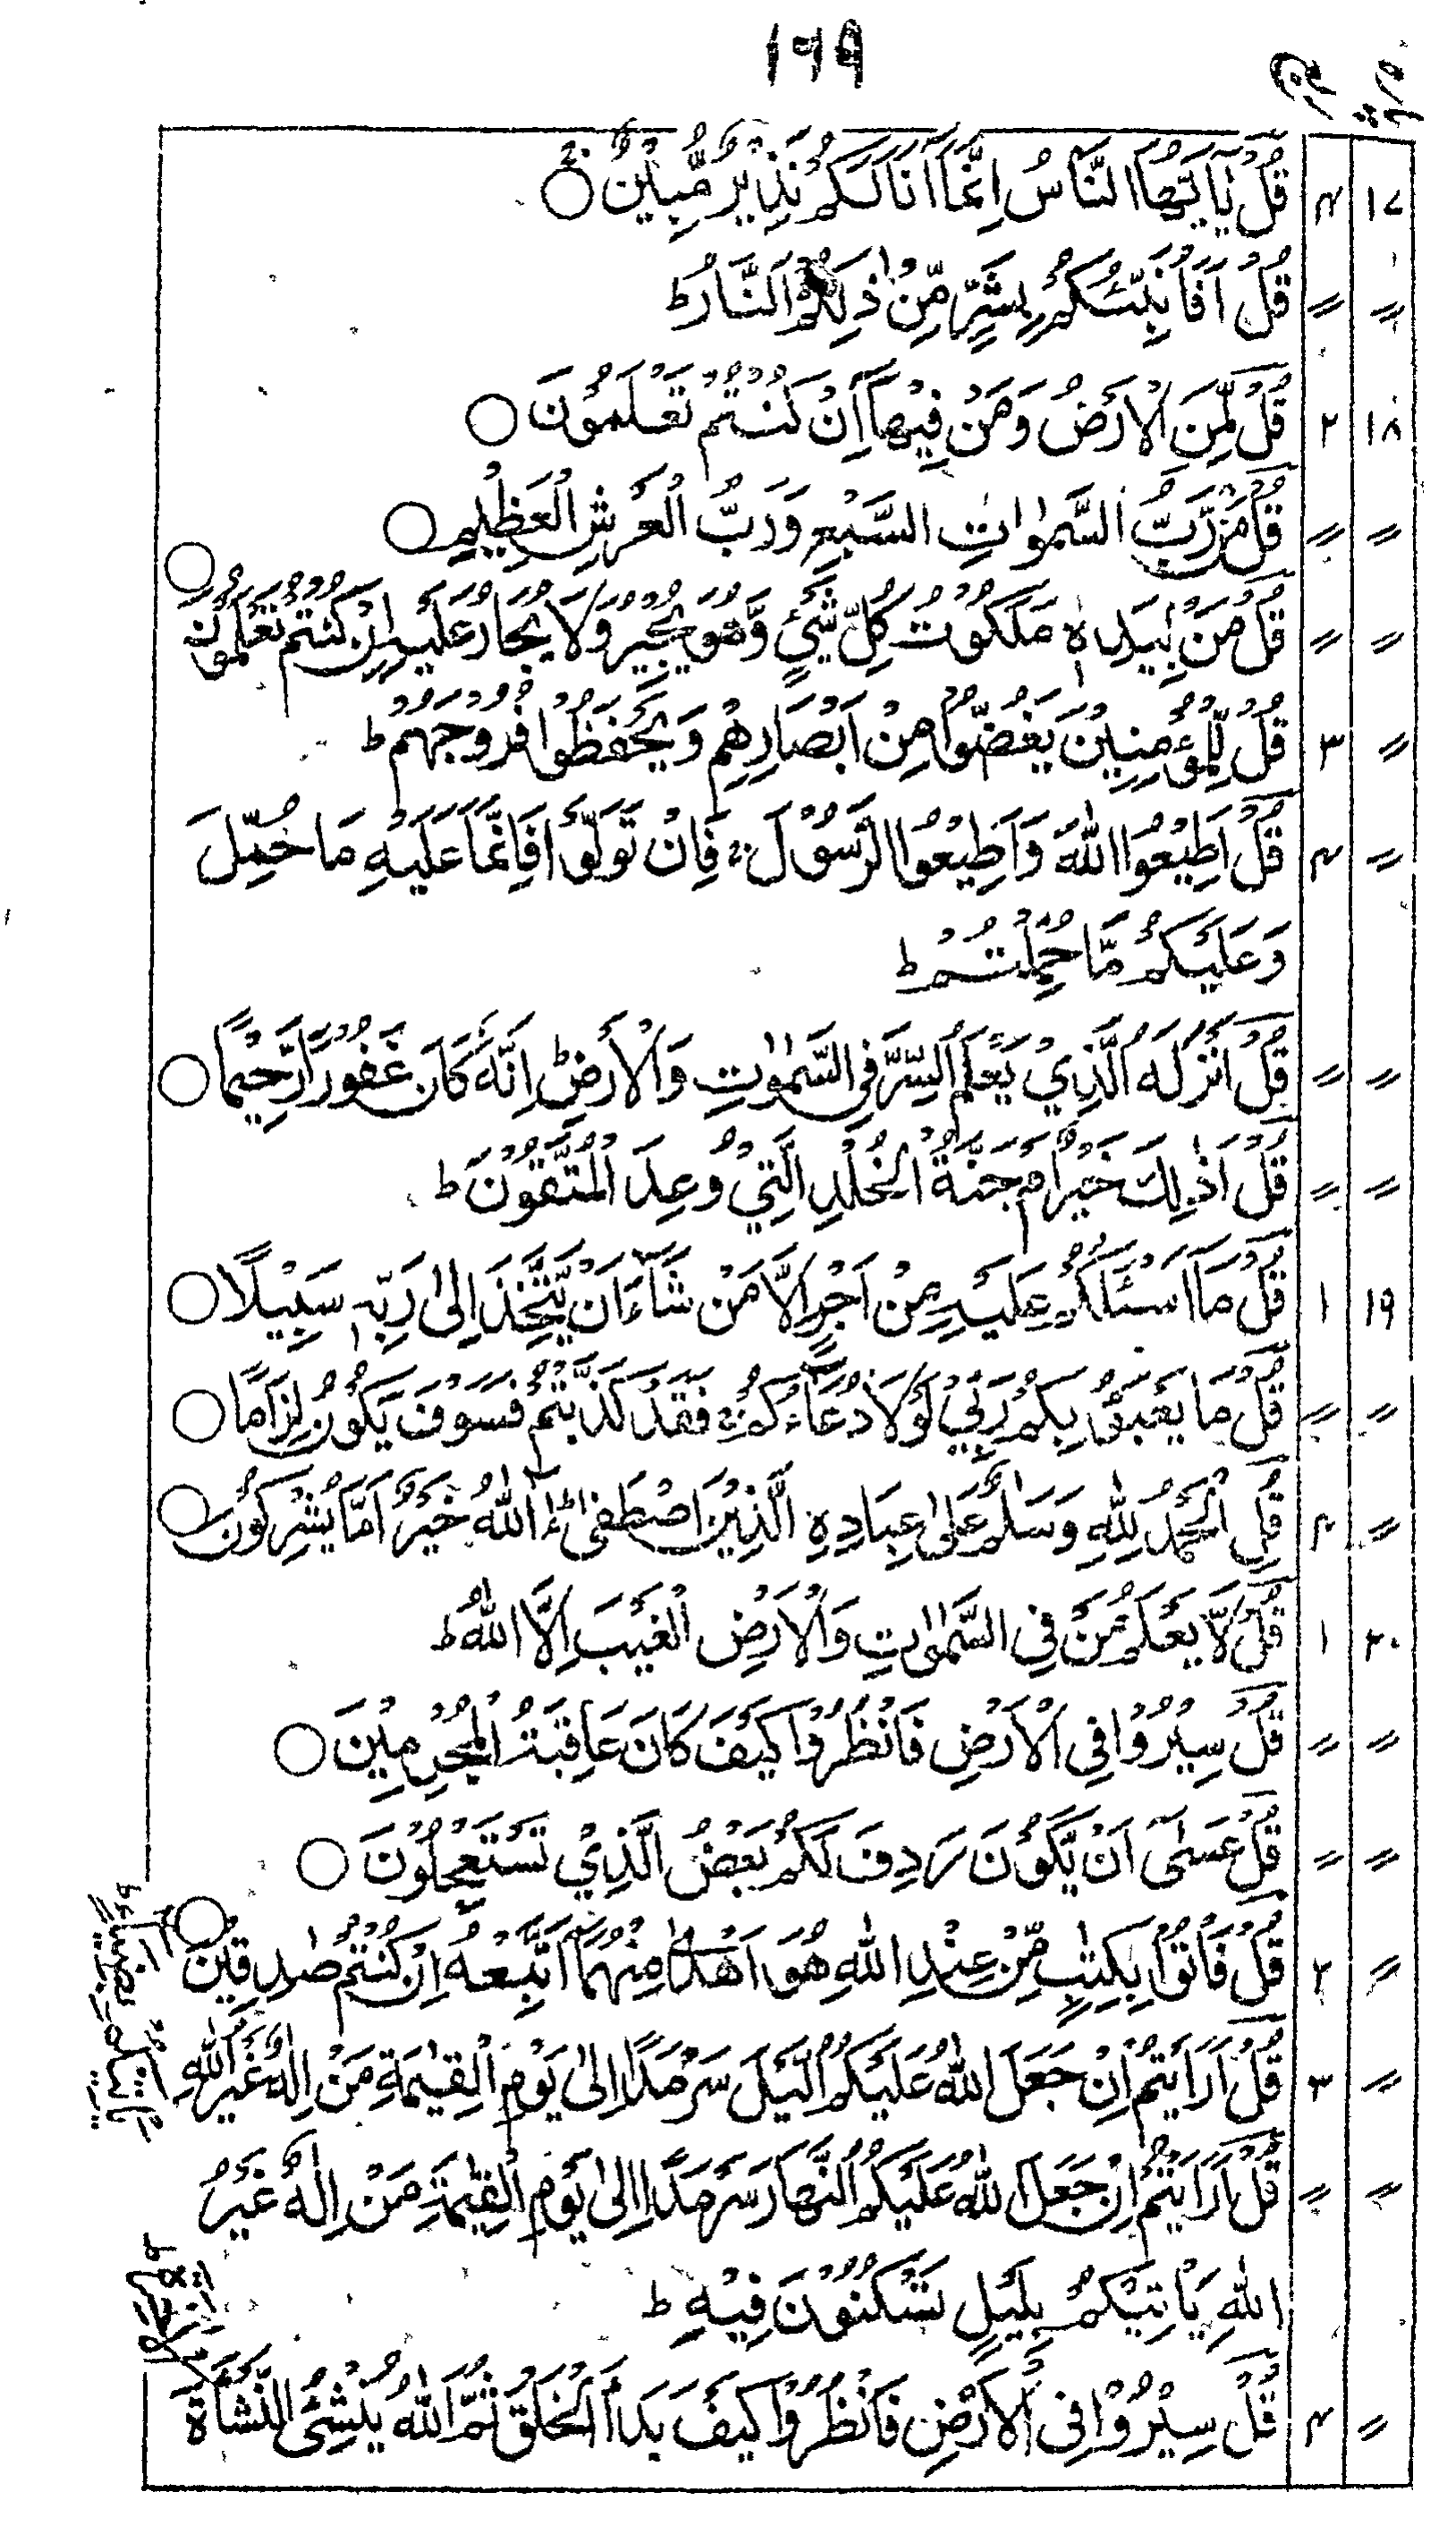 ۱۹۹
۱۷ ۴ قُلْ يٰٓاَيُّهَا النَّاسُ اِنَّمَآ اَنَا لَكُمْ نَذِيْرٌ مُّبِيْنٌ ○
〃 〃 قُلْ اَفَاُنَبِّئُكُمْ بِشَرٍّ مِّنْ ذٰلِكُمْ اَلنَّارُ ط
۱۸ ۲ قُلْ لِّمَنِ الْاَرْضُ وَمَنْ فِيْهَآ اِنْ كُنْتُمْ تَعْلَمُوْنَ ○
〃 〃 قُلْ مَنْ رَّبُّ السَّمٰوٰاتِ السَّبْعِ وَرَبُّ الْعَرْشِ الْعَظِيْمِ ○
〃 〃 قُلْ مَنْ بِيَدِهٖ مَلَكُوْتُ كُلِّ شَيْءٍ وَّهُوَ يُجِيْرُ وَلَا يُجَارُ عَلَيْهِ اِنْ كُنْتُمْ تَعْلَمُوْنَ ○
〃 ۳ قُلْ لِّلْمُؤْمِنِيْنَ يَغُضُّوْا مِنْ اَبْصَارِهِمْ وَيَحْفَظُوْا فُرُوْجَهُمْ ط
〃 ۴ قُلْ اَطِيْعُوا اللّٰهَ وَاَطِيْعُوا الرَّسُوْلَ ج فَاِنْ تَوَلَّوْا فَاِنَّمَا عَلَيْهِ مَا حُمِّلَ
وَعَلَيْكُمْ مَّا حُمِّلْتُمْ ط
〃 〃 قُلْ اَنْزَلَهُ الَّذِيْ يَعْلَمُ السِّرَّ فِي السَّمٰوٰتِ وَالْاَرْضِ ط اِنَّهٗ كَانَ غَفُوْرًا رَّحِيْمًا ○
〃 〃 قُلْ اَذٰلِكَ خَيْرٌ اَمْ جَنَّةُ الْخُلْدِ الَّتِيْ وُعِدَ الْمُتَّقُوْنَ ط
۱۹ ۱ قُلْ مَآ اَسْئَلُكُمْ عَلَيْهِ مِنْ اَجْرٍ اِلَّا مَنْ شَآءَ اَنْ يَّتَّخِذَ اِلٰى رَبِّهٖ سَبِيْلًا ○
〃 〃 قُلْ مَا يَعْبَؤُا بِكُمْ رَبِّيْ لَوْلَا دُعَآءُكُمْ ج فَقَدْ كَذَّبْتُمْ فَسَوْفَ يَكُوْنُ لِزَامًا ○
〃 ۴ قُلِ الْحَمْدُ لِلّٰهِ وَسَلٰمٌ عَلٰى عِبَادِهِ الَّذِيْنَ اصْطَفٰى ط ءٰٓاللّٰهُ خَيْرٌ اَمَّا يُشْرِكُوْنَ ○
۲۰ ۱ قُلْ لَّا يَعْلَمُ مَنْ فِي السَّمٰوٰتِ وَالْاَرْضِ الْغَيْبَ اِلَّا اللّٰهُ ط
〃 〃 قُلْ سِيْرُوْا فِي الْاَرْضِ فَانْظُرُوْا كَيْفَ كَانَ عَاقِبَةُ الْمُجْرِمِيْنَ ○
〃 〃 قُلْ عَسٰٓى اَنْ يَّكُوْنَ رَدِفَ لَكُمْ بَعْضُ الَّذِيْ تَسْتَعْجِلُوْنَ ○
〃 ۲ قُلْ فَاْتُوْا بِكِتٰبٍ مِّنْ عِنْدِ اللّٰهِ هُوَ اَهْدٰى مِنْهُمَآ اَتَّبِعْهُ اِنْ كُنْتُمْ صٰدِقِيْنَ ○
〃 ۳ قُلْ اَرَاَيْتُمْ اِنْ جَعَلَ اللّٰهُ عَلَيْكُمُ الَّيْلَ سَرْمَدًا اِلٰى يَوْمِ الْقِيٰمَةِ مَنْ اِلٰهٌ غَيْرُ اللّٰهِ
〃 〃 قُلْ اَرَاَيْتُمْ اِنْ جَعَلَ اللّٰهُ عَلَيْكُمُ النَّهَارَ سَرْمَدًا اِلٰى يَوْمِ الْقِيٰمَةِ مَنْ اِلٰهٌ غَيْرُ
اللّٰهِ يَاْتِيْكُمْ بِلَيْلٍ تَسْكُنُوْنَ فِيْهِ ط
〃 ۴ قُلْ سِيْرُوْا فِي الْاَرْضِ فَانْظُرُوْا كَيْفَ بَدَاَ الْخَلْقَ ثُمَّ اللّٰهُ يُنْشِئُ النَّشْاَةَ